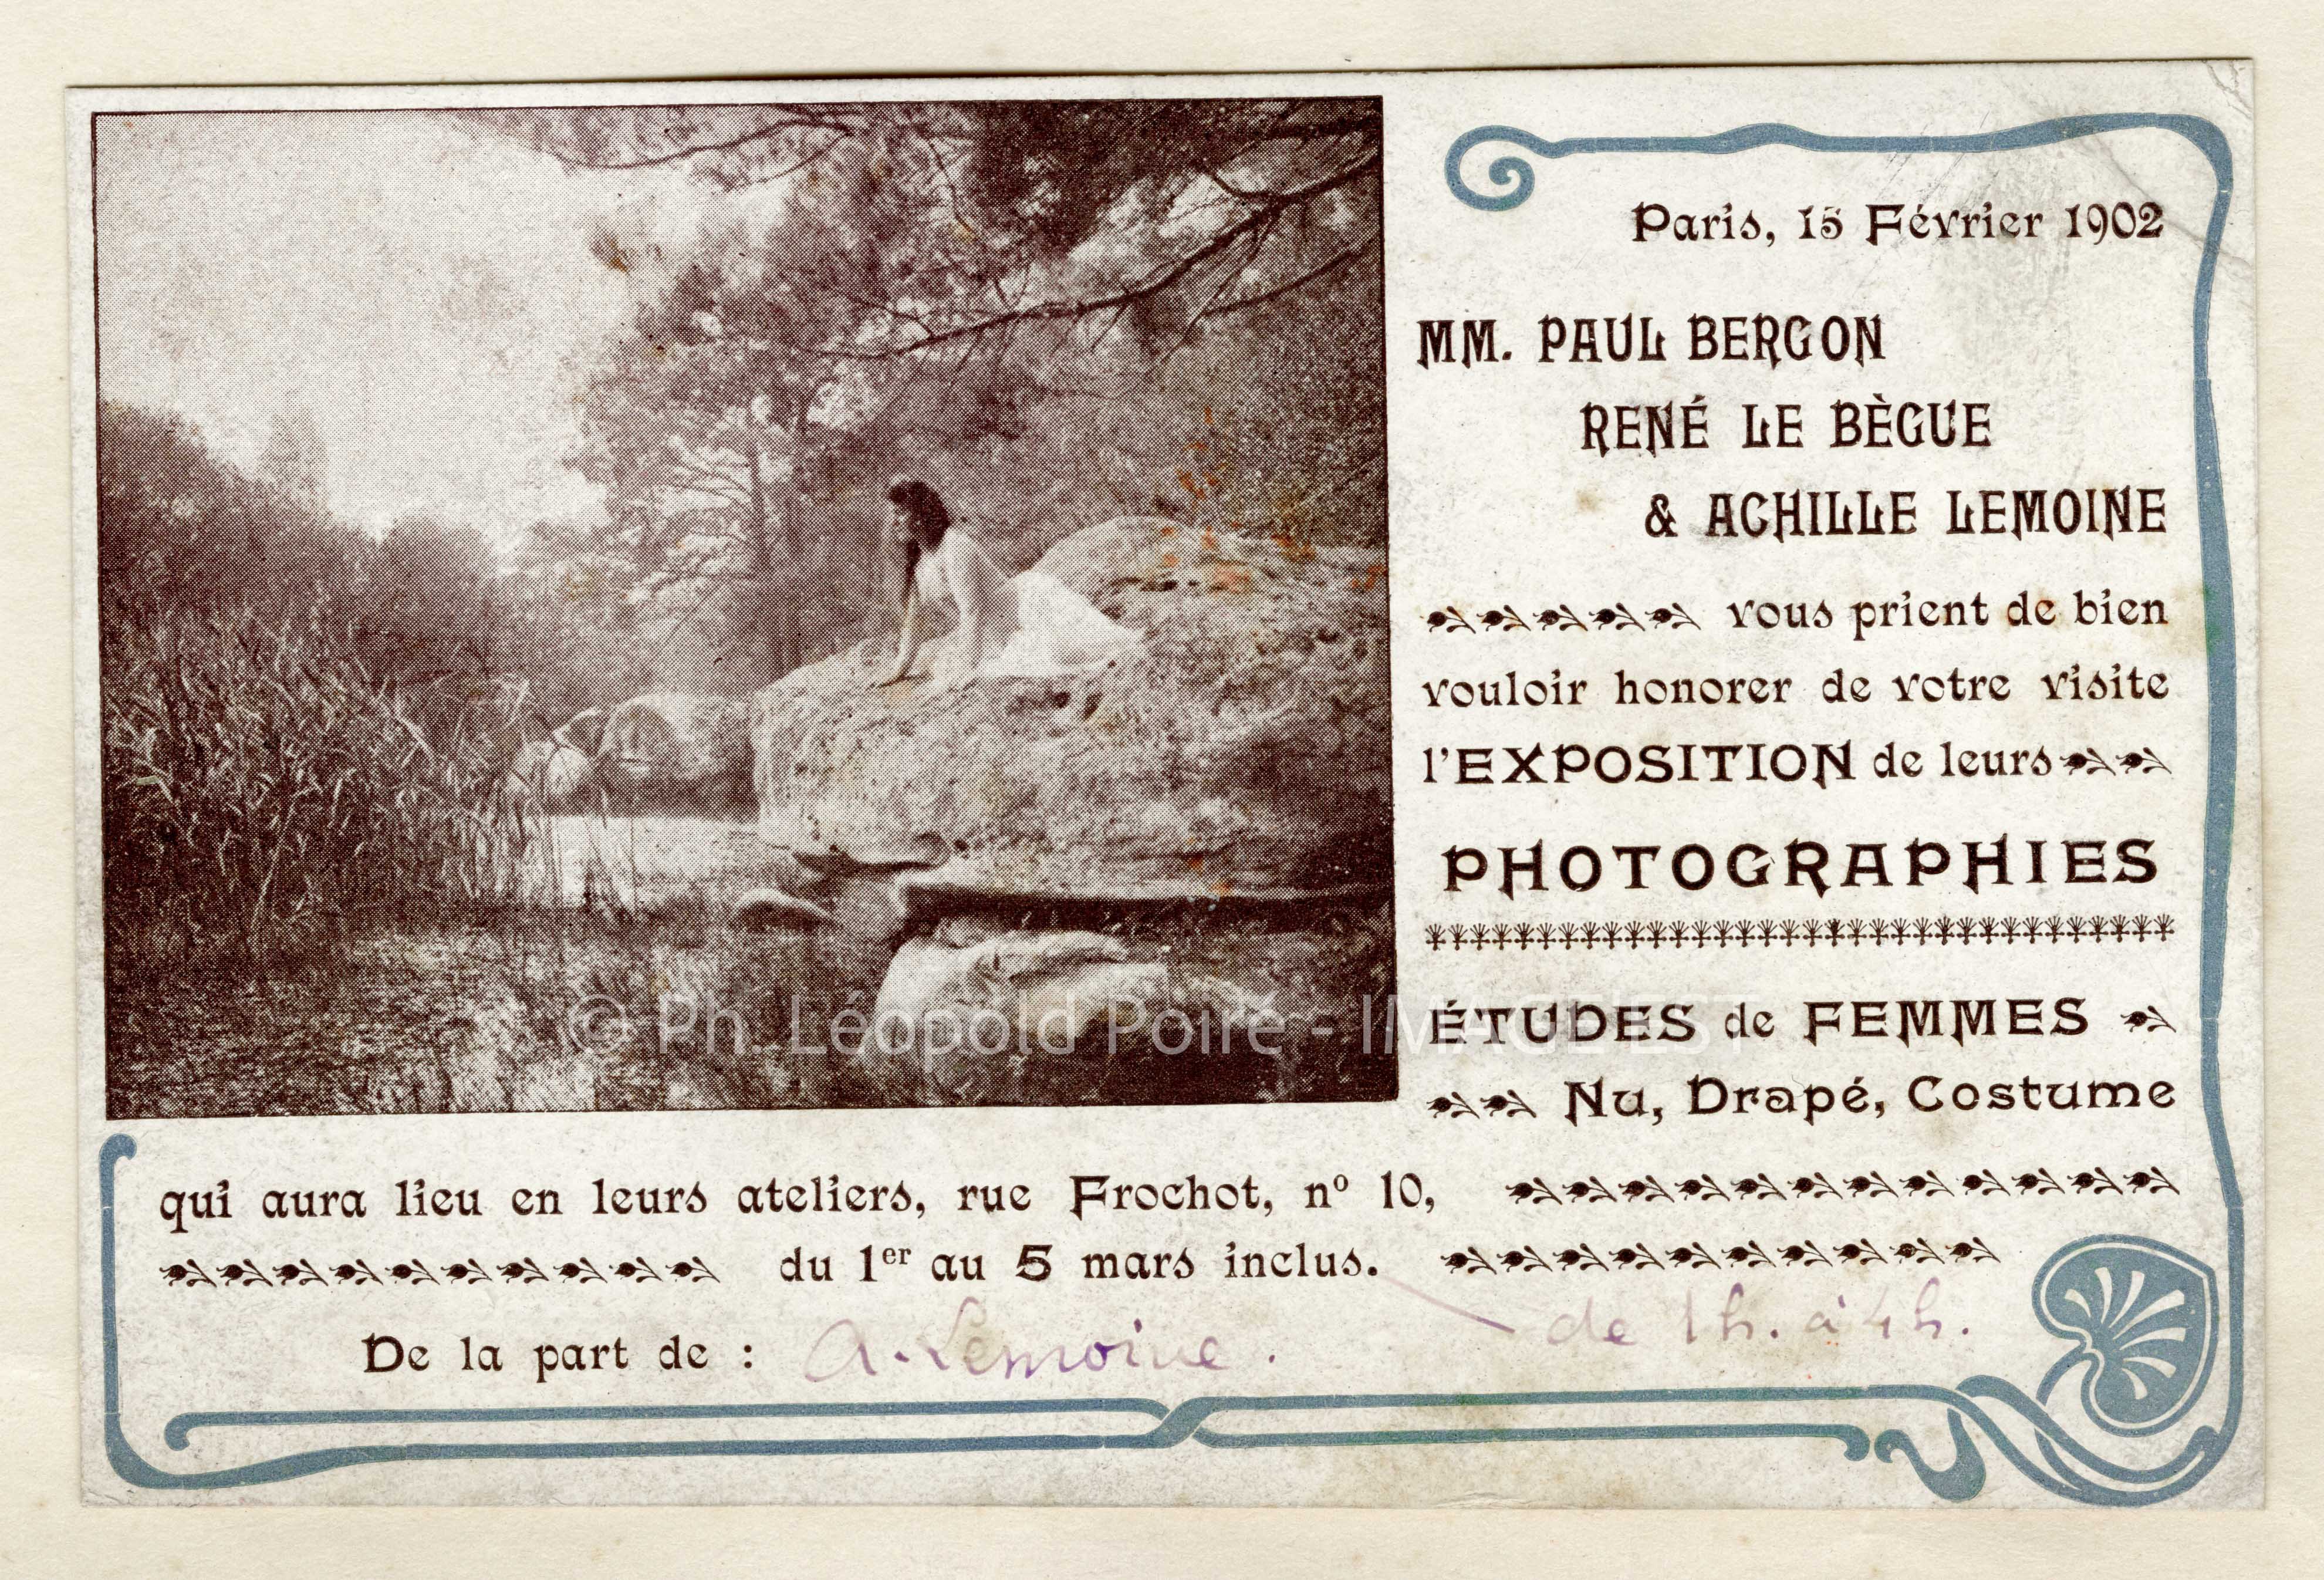 Paris, 15 Février 1902
MM. PAUL BERGON
RENÉ LE BÈGUE
& ACHILLE LEMOINE
vous prient de bien
vouloir honorer de votre visite
l'EXPOSITION de leurs
PHOTOGRAPHIES
© Ph. Léopold Poiré - IMAGE'EST
ÉTUDES de FEMMES
Nu, Drapé, Costume
qui aura lieu en leurs ateliers, rue Frochot, nº 10,
du 1er au 5 mars inclus.
de 1h. à 4h.
De la part de : A. Lemoine.